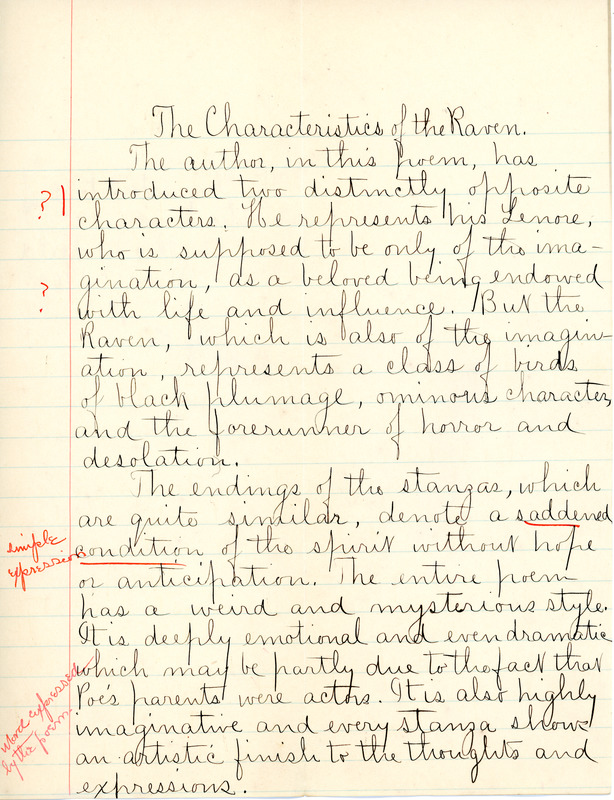 The Characteristics of the Raven.
The author, in this poem, has
? introduced two distinctly opposite
characters. He represents his Lenore,
who is supposed to be only of the ima-
gination, as a beloved being endowed
? with life and influence. But the
Raven, which is also of the imagin-
ation, represents a class of birds
of black plumage, ominous character,
and the forerunner of horror and
desolation.
The endings of the stanzas, which
are quite similar, denote a saddened
simple
expression
condition of the spirit without hope
or anticipation. The entire poem
has a weird and mysterious style.
It is deeply emotional and even dramatic
which may be partly due to the fact that
Poe's parents were actors. It is also highly
expressed
by the poem.
imaginative and every stanza shows
an artistic finish to the thoughts and
expressions.